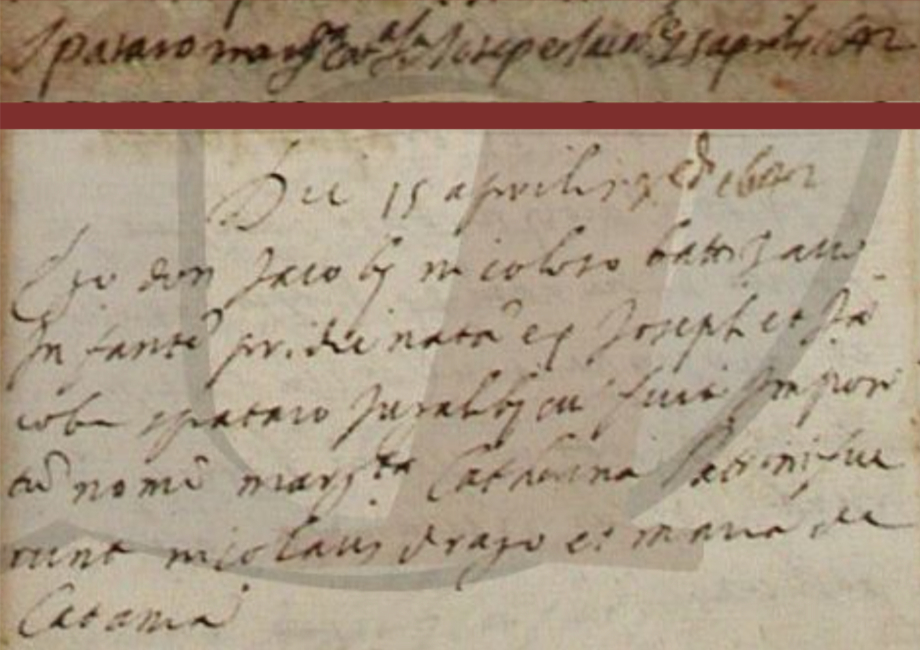 Spataro marg.ta Cat.a f.a Joseph 15 aprilis 1642
Die 15 aprilis x.e ind. 1642
Ego don Jacobus nicoloso battizavi
Infante pridie nata ex Joseph et Ja
coba spataro Jugalibus cui fuit Imposi
tu nome marg.ta Catherina Patrini fue
runt nicolaus drago et maria de
Catania